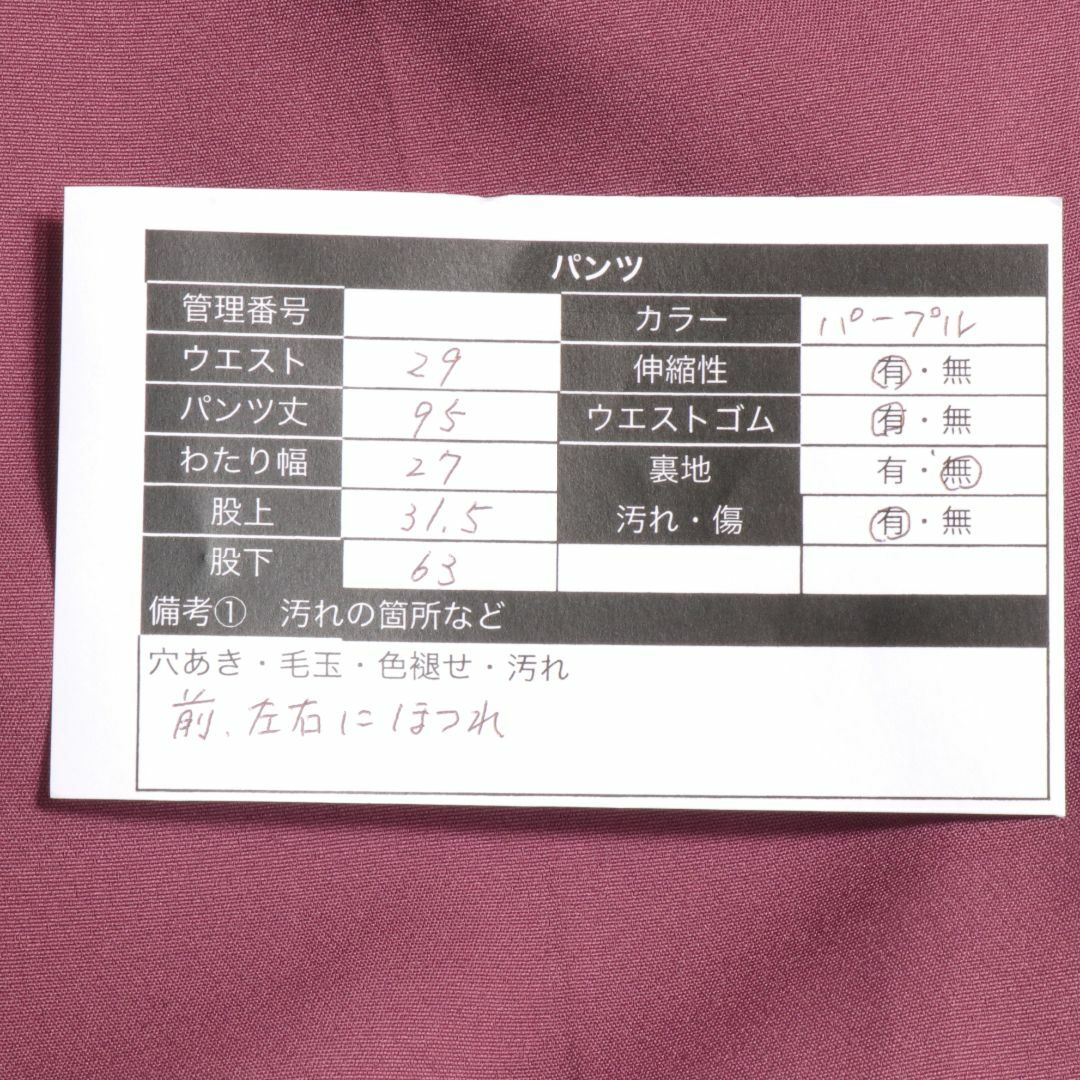 パンツ
管理番号 カラー パープル
ウエスト 29 伸縮性 有・無
パンツ丈 95 ウエストゴム 有・無
わたり幅 27 裏地 有・無
股上 31.5 汚れ・傷 有・無
股下 63
備考① 汚れの箇所など
穴あき・毛玉・色褪せ・汚れ
前、左右にほつれ